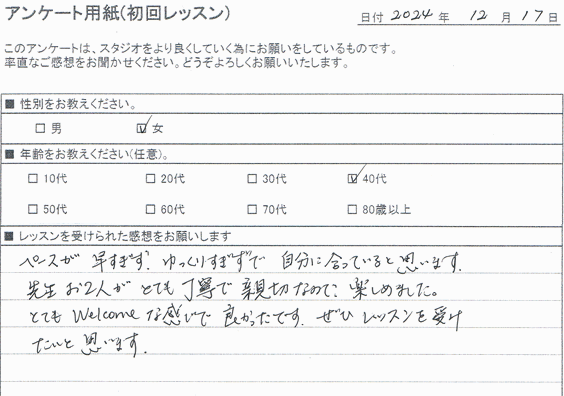 アンケート用紙(初回レッスン)
日付 2024 年 12 月 17 日
このアンケートは、スタジオをより良くしていく為にお願いをしているものです。
率直なご感想をお聞かせください。どうぞよろしくお願いいたします。
■ 性別をお教えください。
□ 男 ☑ 女
■ 年齢をお教えください(任意)。
□ 10代 □ 20代 □ 30代 ☑ 40代
□ 50代 □ 60代 □ 70代 □ 80歳以上
■ レッスンを受けられた感想をお願いします
ペースが 早すぎず、ゆっくりすぎずで 自分に合っていると思います。
先生 お2人が とても 丁寧で 親切なので、楽しめました。
とても Welcome な感じで 良かったです。ぜひ レッスンを受け
たいと 思います。